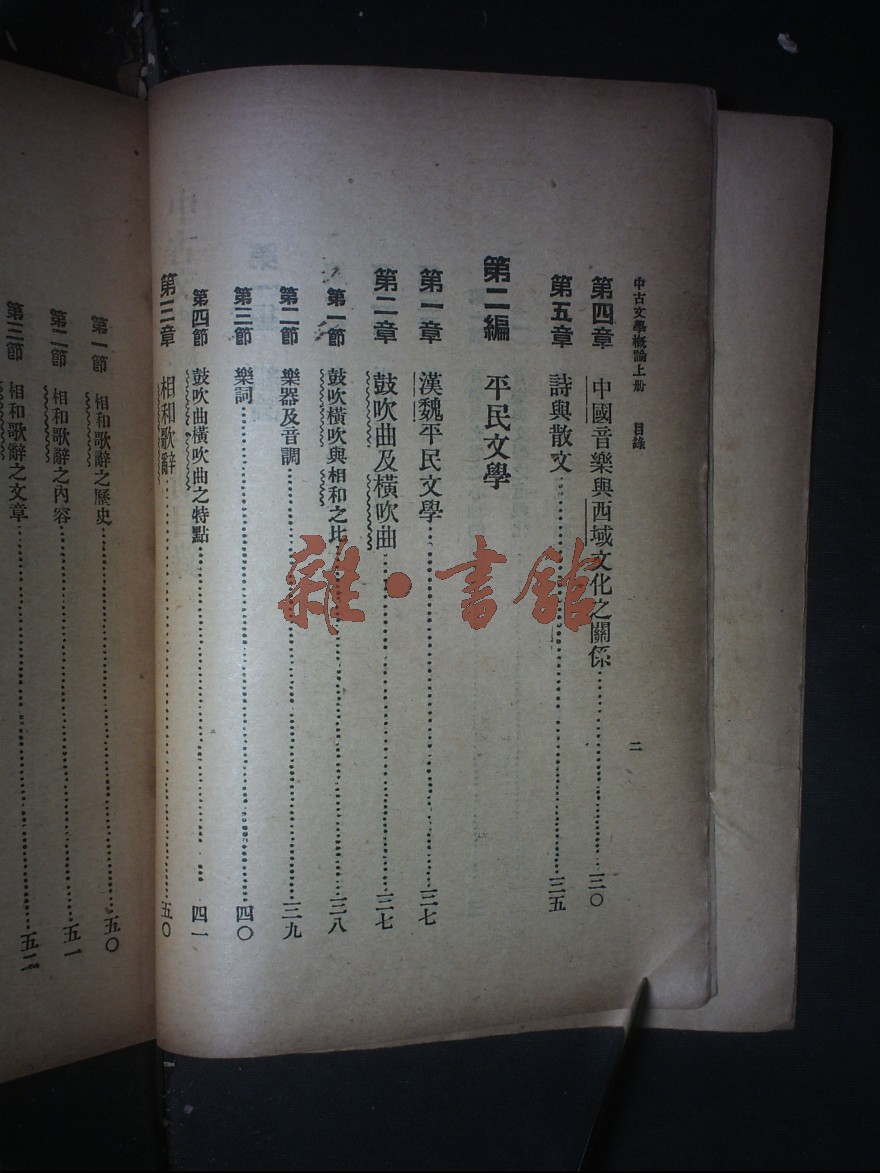 中古文學概論上册 目錄 二
第四章 中國音樂與西域文化之關係……三〇
第五章 詩與散文……三五
第二編 平民文學
第一章 漢魏平民文學……三七
第二章 鼓吹曲及橫吹曲……三七
第一節 鼓吹橫吹與相和之比……三八
第二節 樂器及音調……三九
第三節 樂詞……四〇
第四節 鼓吹曲橫吹曲之特點……四一
第三章 相和歌辭……五〇
第一節 相和歌辭之歷史……五〇
第二節 相和歌辭之內容……五一
第三節 相和歌辭之文章……五二
雜·書館